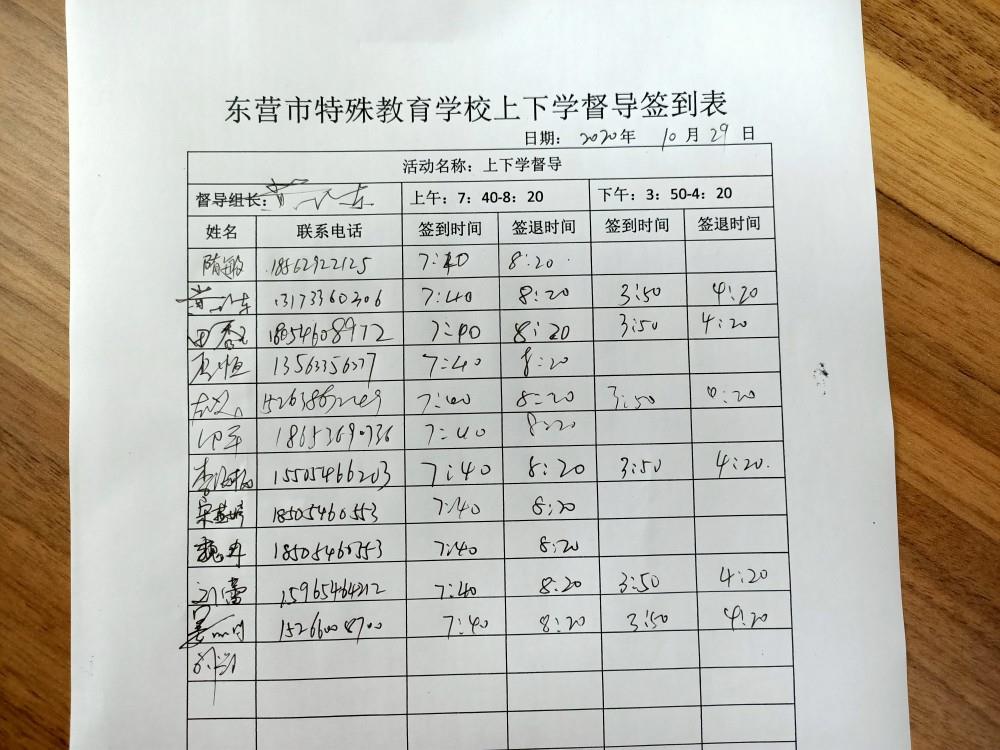 东营市特殊教育学校上下学督导签到表
日期: 2020年 10月29日
活动名称：上下学督导
督导组长： 上午：7：40-8：20 下午：3：50-4：20
姓名 联系电话 签到时间 签退时间 签到时间 签退时间
隋敏 18562922125 7:40 8:20
13173360306 7:40 8:20 3:50 4:20
18054608972 7:40 8:20 3:50 4:20
7:40 8:20
7:40 8:20 3:50
7:40 8:20
15505466203 7:40 8:20 3:50 4:20
18505460553 7:40 8:20
魏冉 18505460353 7:40 8:20
刘蕾 15965464212 7:40 8:20 3:50 4:20
15266008700 7:40 8:20 3:50 4:20